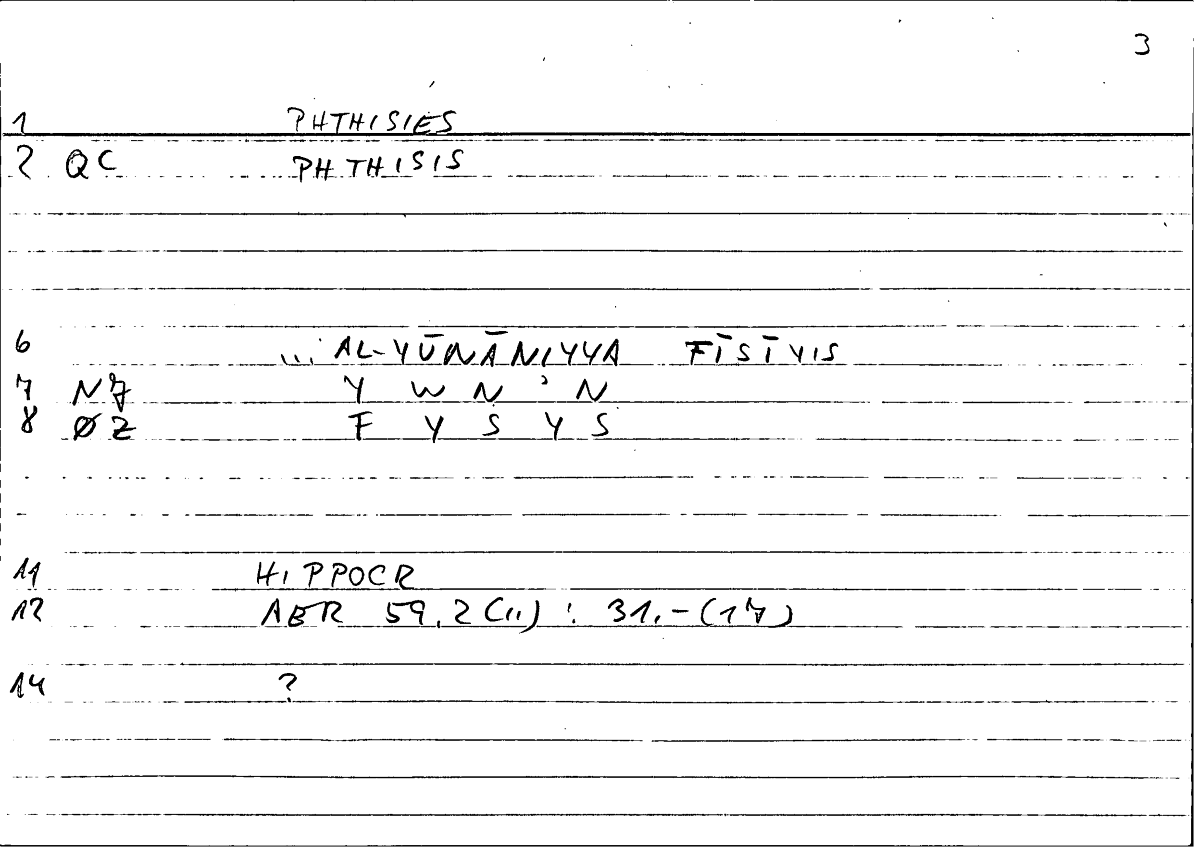 3
1 PHTHISIES
2 QC PHTHISIS
6 ... AL-YŪNĀNIYYA FĪSĪYIS
7 NZ Y W N ʾ N
8 ØZ F Y S Y S
11 HIPPOCR
12 AER 59,2(11) : 31,-(17)
14 ?